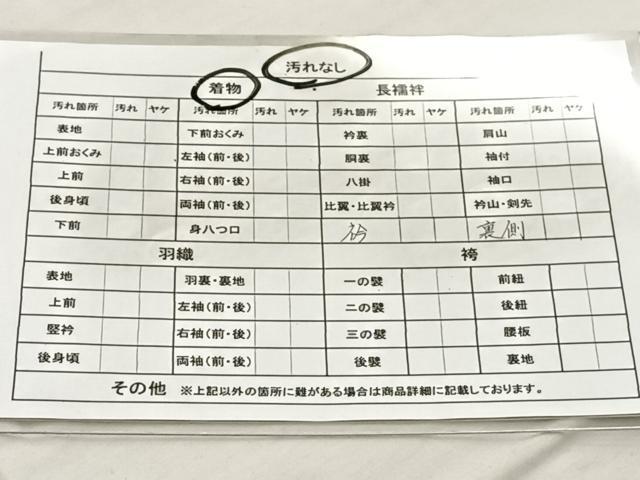 汚れなし
着物 長襦袢
汚れ箇所 汚れ ヤケ 汚れ箇所 汚れ ヤケ 汚れ箇所 汚れ ヤケ 汚れ箇所 汚れ ヤケ
表地 下前おくみ 衿裏 肩山
上前おくみ 左袖(前・後) 胴裏 袖付
上前 右袖(前・後) 八掛 袖口
後身頃 両袖(前・後) 比翼・比翼衿 衿山・剣先
下前 身八つ口 衿 裏側
羽織 袴
表地 羽裏・裏地 一の襞 前紐
上前 左袖(前・後) 二の襞 後紐
竪衿 右袖(前・後) 三の襞 腰板
後身頃 両袖(前・後) 後襞 裏地
その他 ※上記以外の箇所に難がある場合は商品詳細に記載しております。